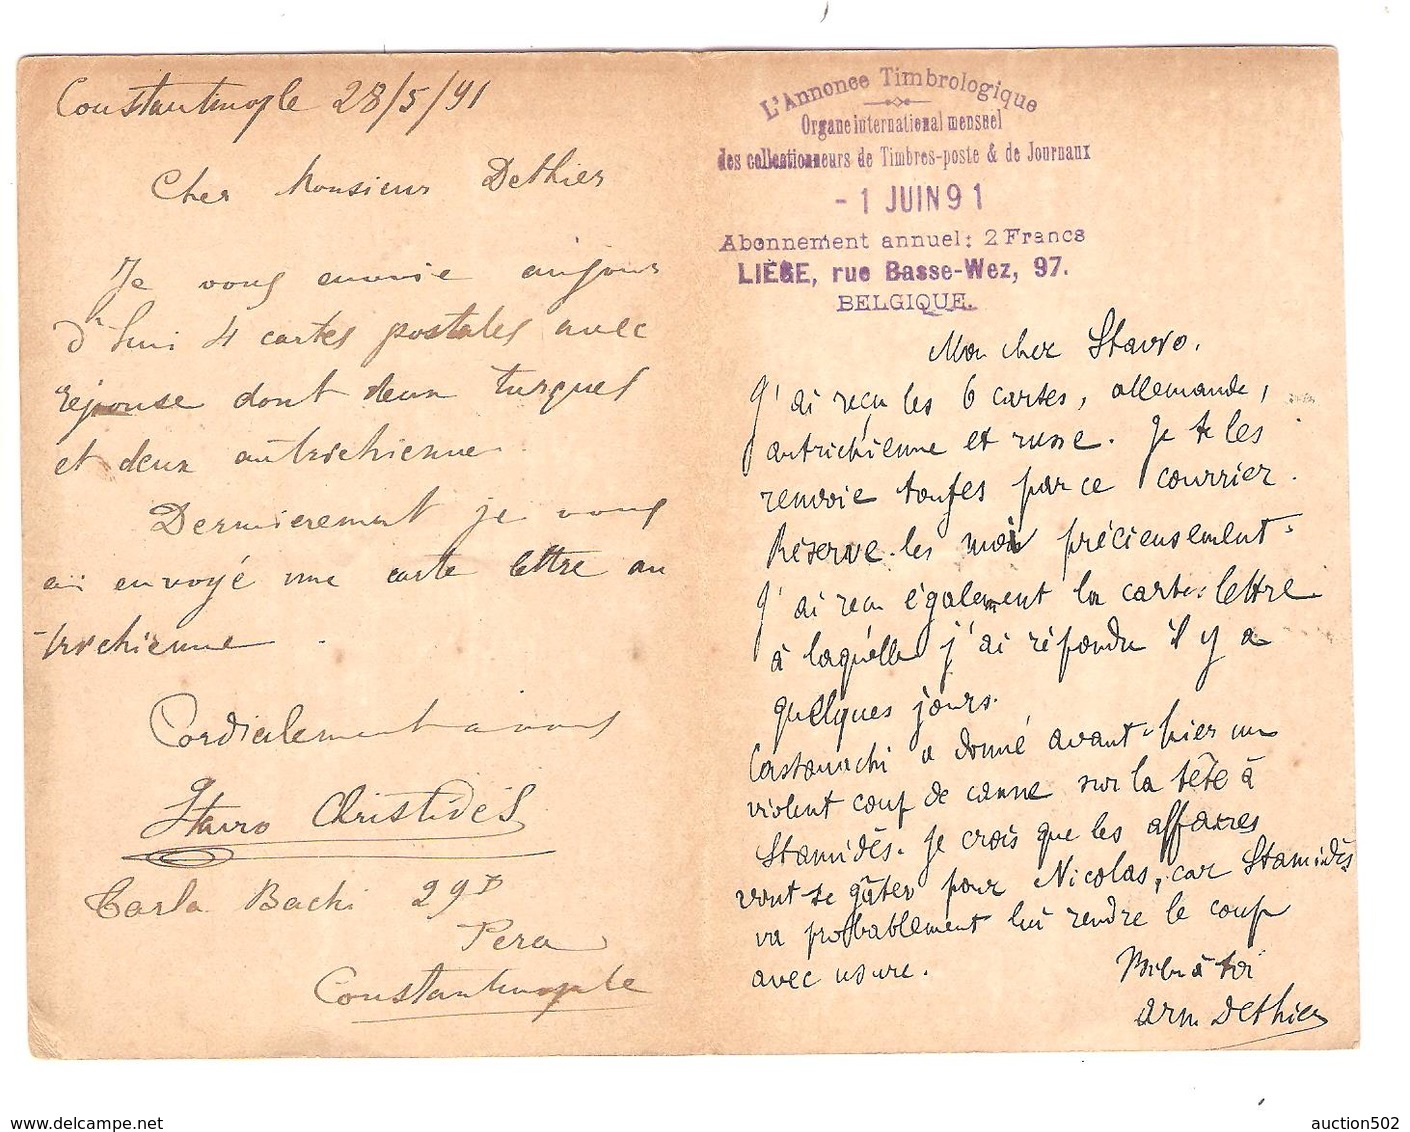 Constantinople 28/5/91
Cher Monsieur Dethier
Je vous envoie aujour
d'hui 4 cartes postales avec
réponse dont deux turques
et deux autrichienne.
Dernierement je vous
ai envoyé une carte lettre au
trichienne.
Cordialement à vous
Stavro Christidès
Carla Bachi 29
Pera
Constantinople
L'Annonce Timbrologique
Organe international mensuel
des collectionneurs de Timbres-poste & de Journaux
- 1 JUIN 91
Abonnement annuel: 2 Francs
LIÈGE, rue Basse-Wez, 97.
BELGIQUE.
Mon cher Stavro,
J'ai reçu les 6 cartes, allemande,
autrichienne et russe. Je te les
renvoie toutes par ce courrier.
Réserve-les moi précieusement.
J'ai reçu également la carte-lettre
à laquelle j'ai répondu il y a
quelques jours.
a donné avant-hier un
violent coup de canne sur la tête à
Stamidès. Je crois que les affaires
vont se gâter pour Nicolas, car Stamidès
va probablement lui rendre le coup
avec usure.
Bien à toi
Arm. Dethier
auction502